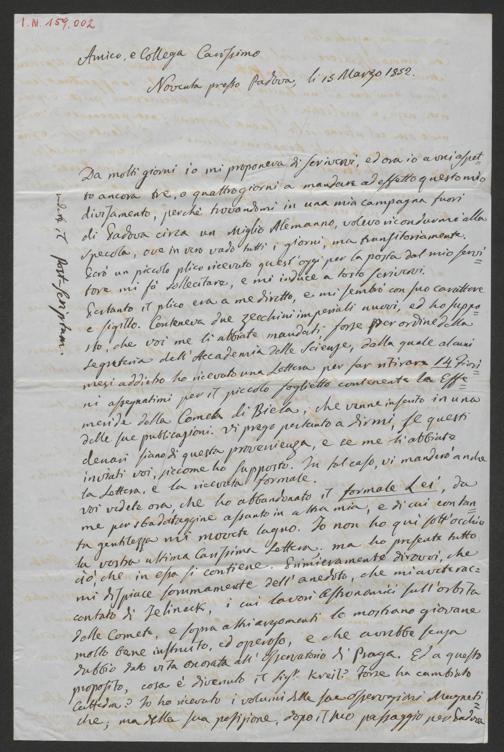 I.N. 159.002
Amico, e Collega Carissimo
Noventa presso Padova, li 15 Marzo 1852.
Da molti giorni io mi proponeva di scrivervi, ed ora io avrei aspet
to ancora tre, o quattro giorni a mandare ad effetto questo mio
divisamento, perchè trovandomi in una mia campagna fuori
di Padova circa un Miglio Alemanno, volevo ricondurmi alla
Specola, ove in vero vado tutti i giorni, ma transitoriamente.
Però un piccolo plico ricevuto quest'oggi per la posta dal mio servi=
tore mi fà sollecitare, e mi induce a tosto scrivervi.
Pertanto il plico era a me diretto, e mi sembrò con suo carattere
e sigillo. Conteneva due zecchini imperiali nuovi, ed ho suppo=
sto, che voi me li abbiate mandati, forse per ordine della
Segreteria dell'Accademia delle Scienze, dalla quale alcuni
mesi addietro ho ricevuto una Lettera per far ritirare 14 Fiori=
ni assegnatimi per il piccolo foglietto contenente la Effe=
meride della Cometa di Biela, che venne inserito in una
delle sue publicazioni. Vi prego pertanto a dirmi, se questi
denari siano di questa provenienza, e se me li abbiate
inviati voi, siccome ho supposto. In tal caso, vi manderò anche
la Lettera, e la ricevuta formale.
Voi vedete ora, che ho abbandonato il formale Lei, da
me per sbadataggine assunto in altra mia, e di cui con tan=
ta gentilezza mi moveste lagno. Io non ho quì sott'occhio
la vostra ultima carissima Lettera, ma ho presente tutto
ciò, che in essa si contiene. Primieramente dirovvi, che
mi dispiace sommamente dell'anedoto, che mi avete rac=
contato di Jelineck, i cui lavori astronomici sull'orbita
delle Comete, e sopra altri argomenti lo mostrano giovane
molto bene instruito, ed operoso, e che avrebbe senza
dubbio dato vita onorata all'Osservatorio di Praga. Ed a questo
proposito, cosa è divenuto il Sigr. Kreil? Forse ha cambiato
Cattedra? Io ho ricevuto i volumi delle sue Osservazioni Magneti=
che; ma della sua posizione, dopo il suo passaggio per Padova
vedete il Post-scriptum.